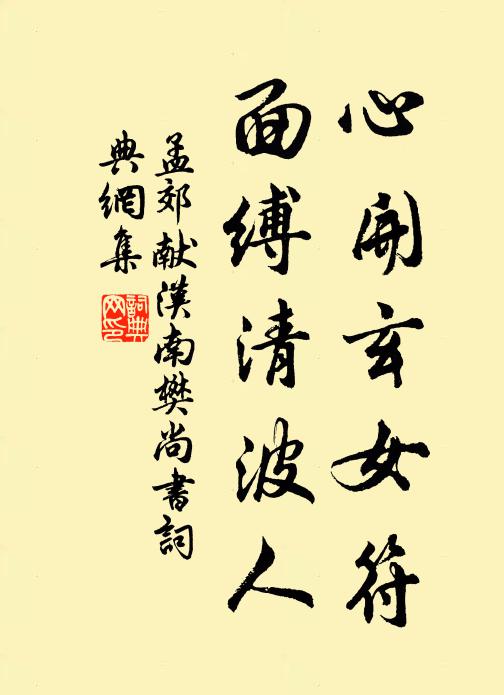 心開玄女符
面縛清波人
孟郊献漢南樊尚書詞
典網集
詞典
网印